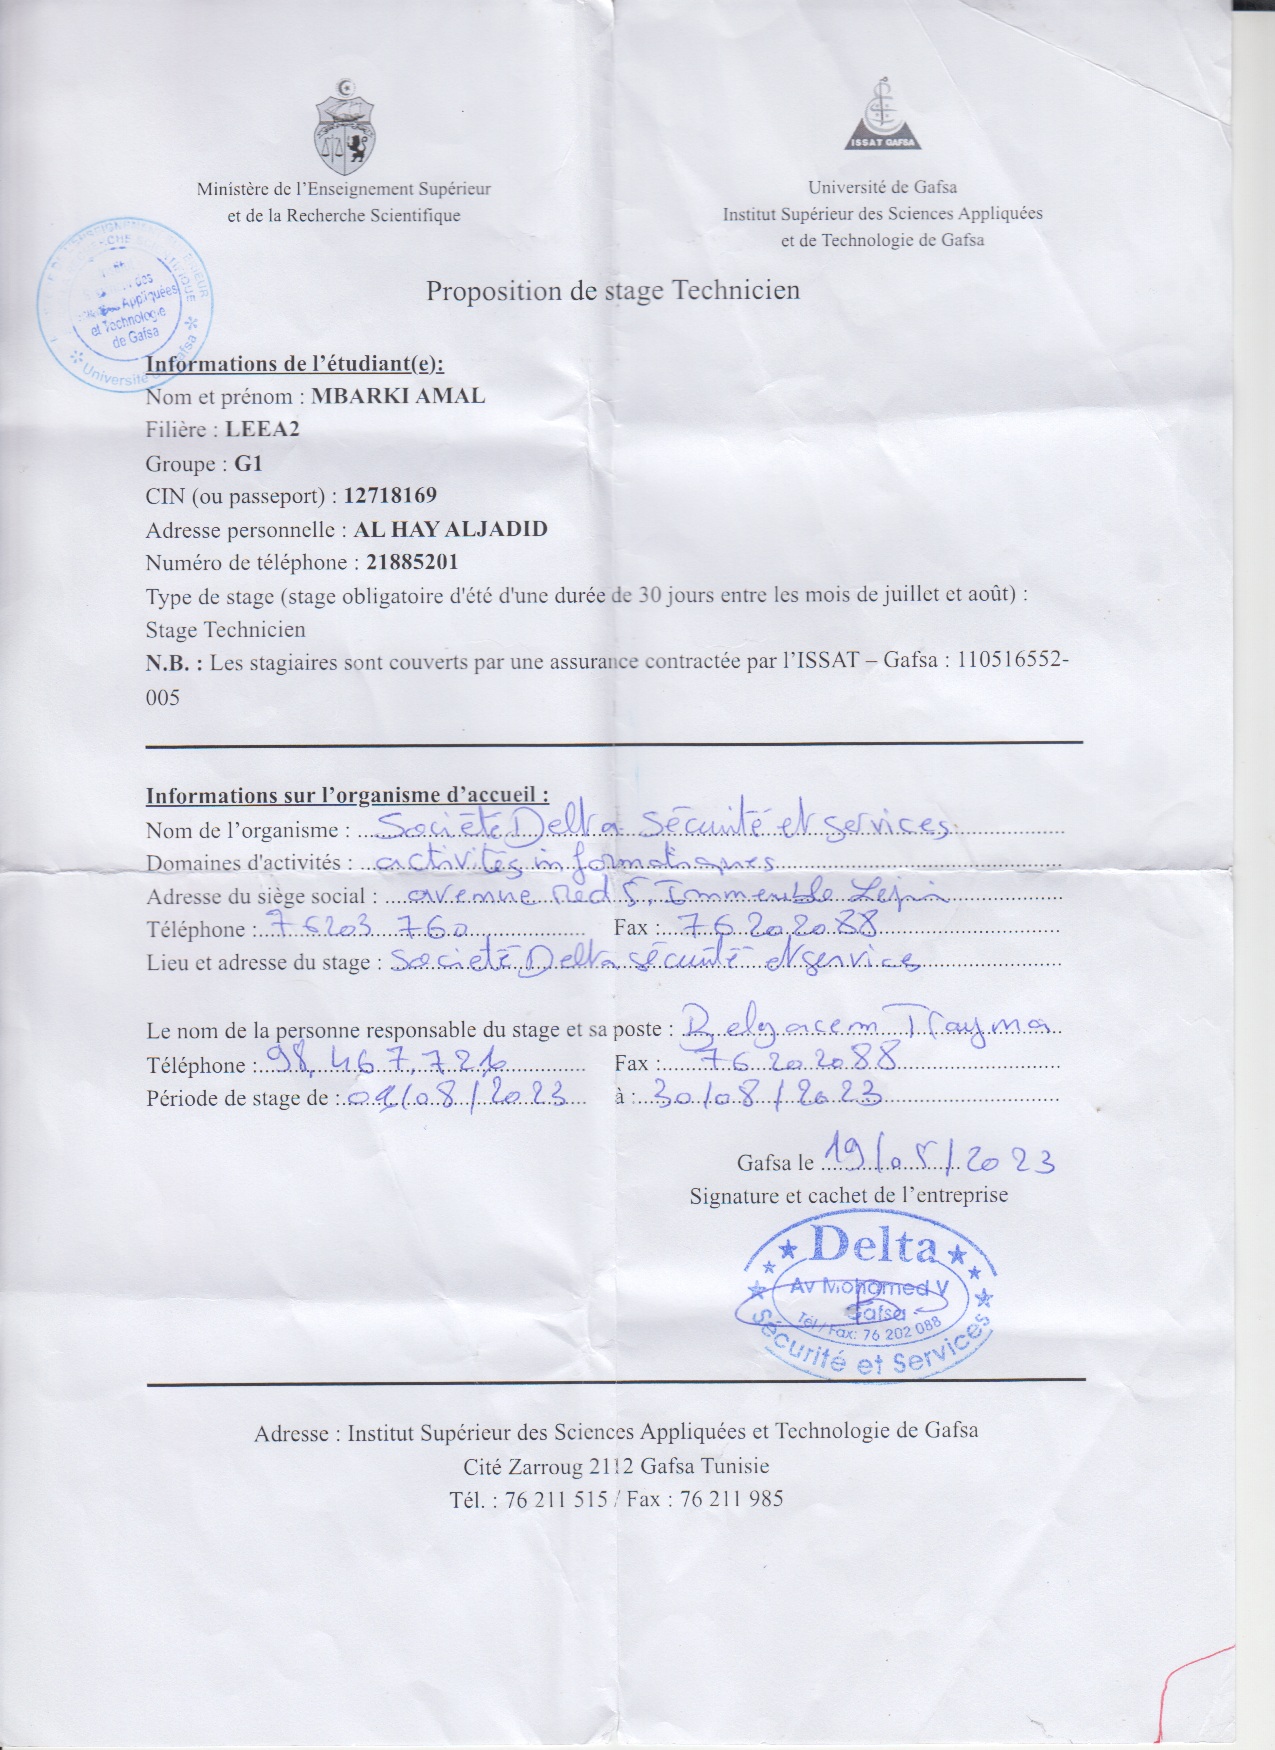 ISSAT GAFSA
Ministère de l'Enseignement Supérieur
et de la Recherche Scientifique
Université de Gafsa
Institut Supérieur des Sciences Appliquées
et de Technologie de Gafsa
des
Appliquées
et Technologie
de Gafsa
Université
Proposition de stage Technicien
Informations de l'étudiant(e):
Nom et prénom : MBARKI AMAL
Filière : LEEA2
Groupe : G1
CIN (ou passeport) : 12718169
Adresse personnelle : AL HAY ALJADID
Numéro de téléphone : 21885201
Type de stage (stage obligatoire d'été d'une durée de 30 jours entre les mois de juillet et août) :
Stage Technicien
N.B. : Les stagiaires sont couverts par une assurance contractée par l'ISSAT – Gafsa : 110516552-
005
Informations sur l'organisme d'accueil :
Nom de l'organisme : Société Delta Sécurité et services
Domaines d'activités : activités informatiques
Adresse du siège social : avenue Med 5, Immeuble
Téléphone : 76203 760 Fax : 76 20 20 88
Lieu et adresse du stage : Société Delta sécurité et services
Le nom de la personne responsable du stage et sa poste : Belgacem
Téléphone : 98 467 726 Fax : 76 20 20 88
Période de stage de : 01/08/2023 à : 30/08/2023
Gafsa le 19/05/2023
Signature et cachet de l'entreprise
Delta
Av Mohamed V
Gafsa
Tél / Fax: 76 202 088
Sécurité et Services
Adresse : Institut Supérieur des Sciences Appliquées et Technologie de Gafsa
Cité Zarroug 2112 Gafsa Tunisie
Tél. : 76 211 515 / Fax : 76 211 985